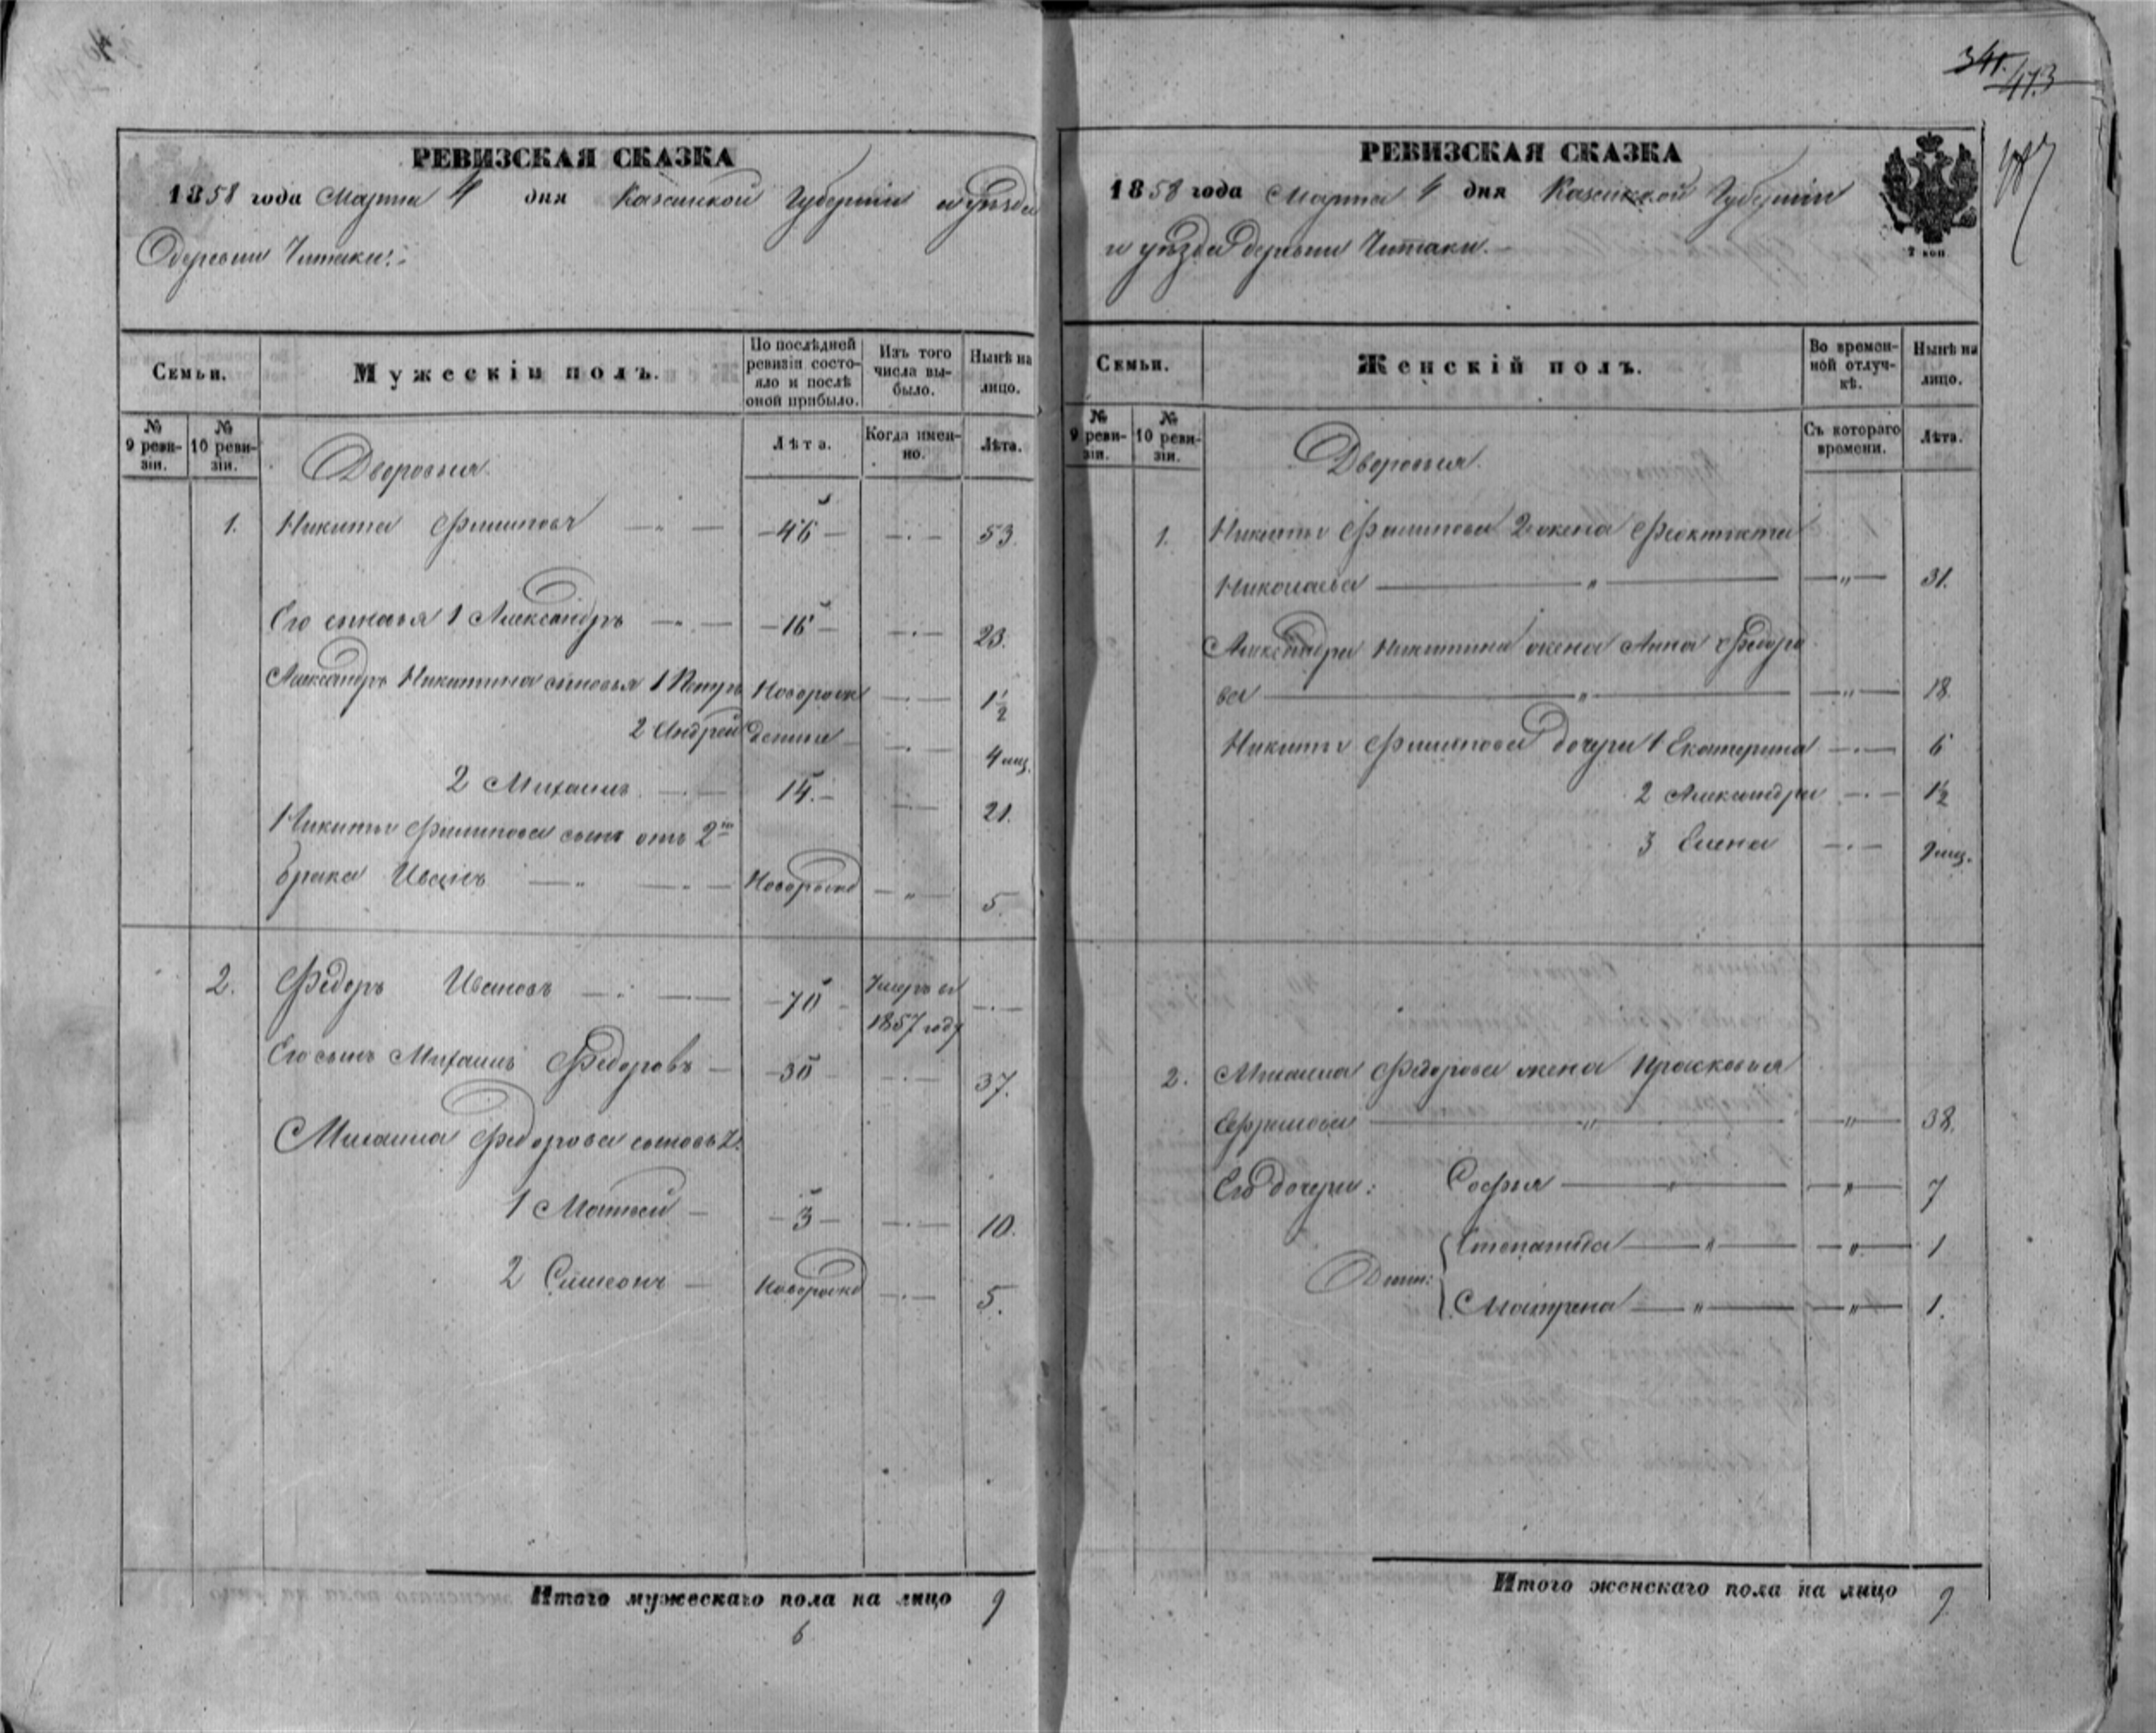 341.
473
РЕВИЗСКАЯ СКАЗКА
1858 года Марта 4 дня Казанской Губерніи и уѣзда
деревни Читаки.
Семьи.
Мужескій полъ.
По послѣдней ревизіи состояло и послѣ оной прибыло.
Изъ того числа выбыло.
Нынѣ на лицо.
№ 9 ревизіи.
№ 10 ревизіи.
Дворовыя.
Лѣта.
Когда именно.
Лѣта.
1. Никита Филиповъ — 46 — 53.
Его сыновья 1 Александръ — 16 — 23.
Александръ Никитина сыновья 1 Петръ Новорож 1 1/2
2 Андрей дения — 4 мц.
2 Михаилъ — 14. — 21.
Никиты Филипова сынъ отъ 2го
брака Иванъ — Новорожд — 5.
2. Федоръ Ивановъ — 70 Умеръ въ
1857 году
Его сынъ Михаилъ Федоровъ — 30 — 37.
Михаила Федорова сыновья
1 Матвей — 3 — 10.
2 Симеонъ — Новорожд — 5.
Итого мужескаго пола на лицо 9
6
РЕВИЗСКАЯ СКАЗКА
1858 года Марта 4 дня Казанской Губерніи
и уѣзда деревни Читаки.
2 коп
Семьи.
Женскій полъ.
Во временной отлучкѣ.
Нынѣ на лицо.
№ 9 ревизіи.
№ 10 ревизіи.
Дворовыя.
Съ котораго времени.
Лѣта.
1. Никиты Филипова 2 жена Феоктиста
Николаева — " — 31.
Александра Никитина жена Анна Федоро
ва — " — 18.
Никиты Филипова дочери 1 Екатерина — 6
2 Александра — 1 1/2
3 Елена — 9 мц.
2. Михаила Федорова жена Прасковья
Ефимова — " — 38.
Его дочери: Софья — " — 7
Степанида — " — 1
Матрена — " — 1.
Итого женскаго пола на лицо 9.